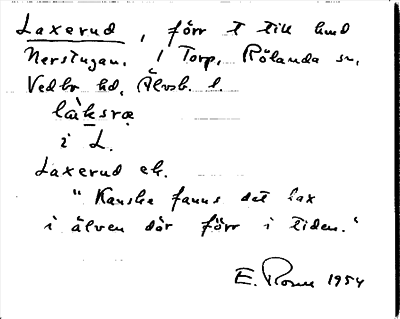 Laxerud, förr t till hmd
Nerstugan, i Torp, Rölanda sn,
Vedbo hd, Älvsb. l.
làksræ
i L.
Laxerud ek.
"Kanske fanns det lax
i älven där förr i tiden."
E. Rosen 1954